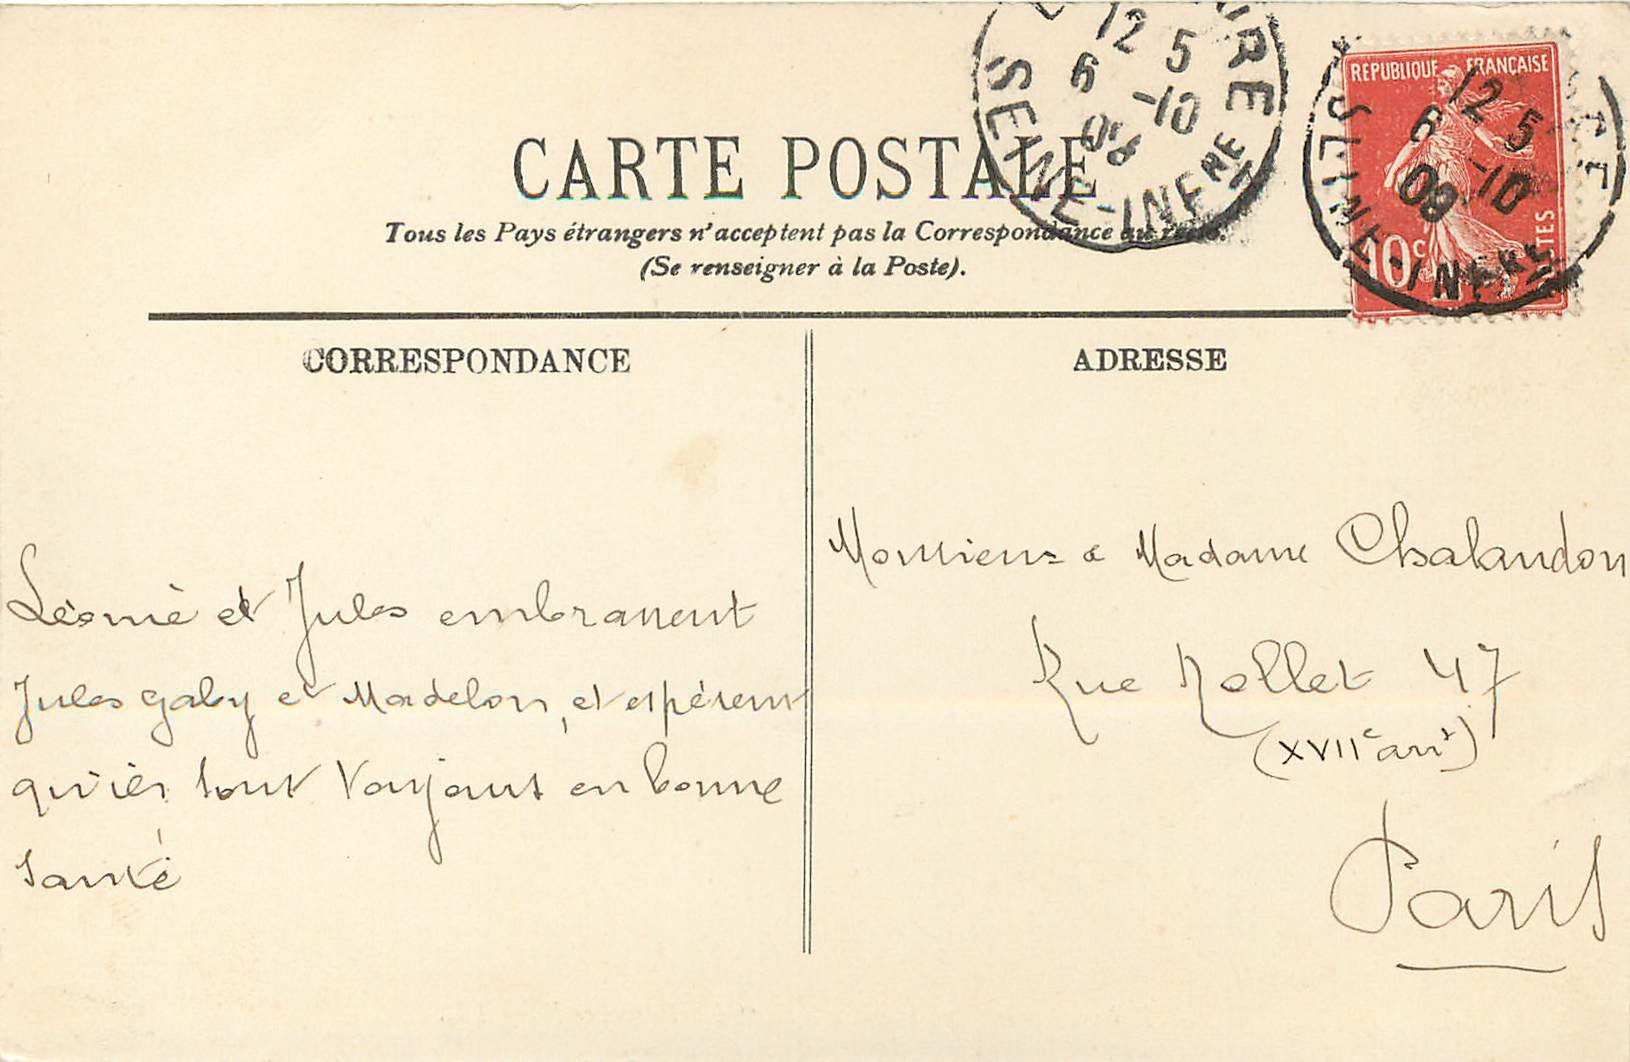 CARTE POSTALE
Tous les Pays étrangers n'acceptent pas la Correspondance au recto.
(Se renseigner à la Poste).
RÉPUBLIQUE FRANÇAISE
10c
POSTES
12 5
6 -10
08
SEINE-INFRE
12 5
6 -10
08
SEINE-INFRE
CORRESPONDANCE
ADRESSE
Léonie et Jules embrassent
Jules Gaby et Madelon, et espèrent
qu'ils sont toujours en bonne
santé
Monsieur & Madame Chalandon
Rue Nollet 47
(XVIIe arrt)
Paris